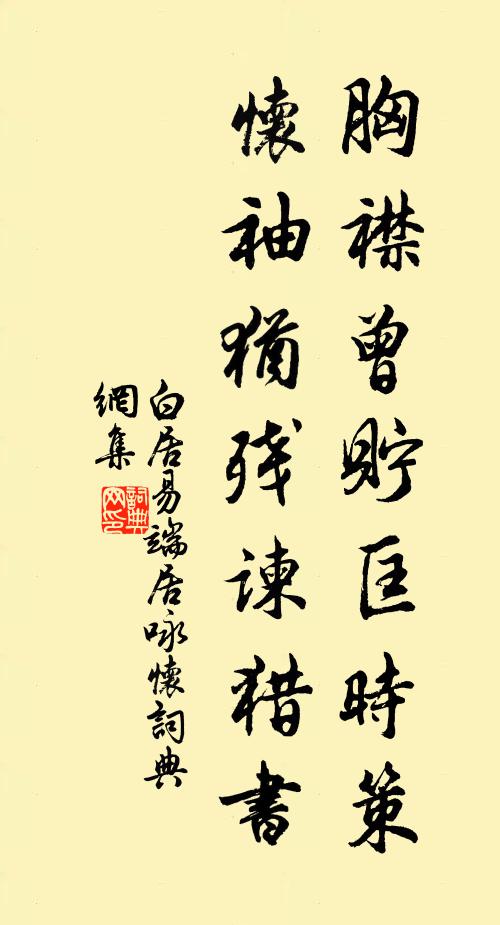 胸襟曾貯匡時策
懷袖猶殘諫猎書
白居易端居咏懷詞典
網集
詞典
网印